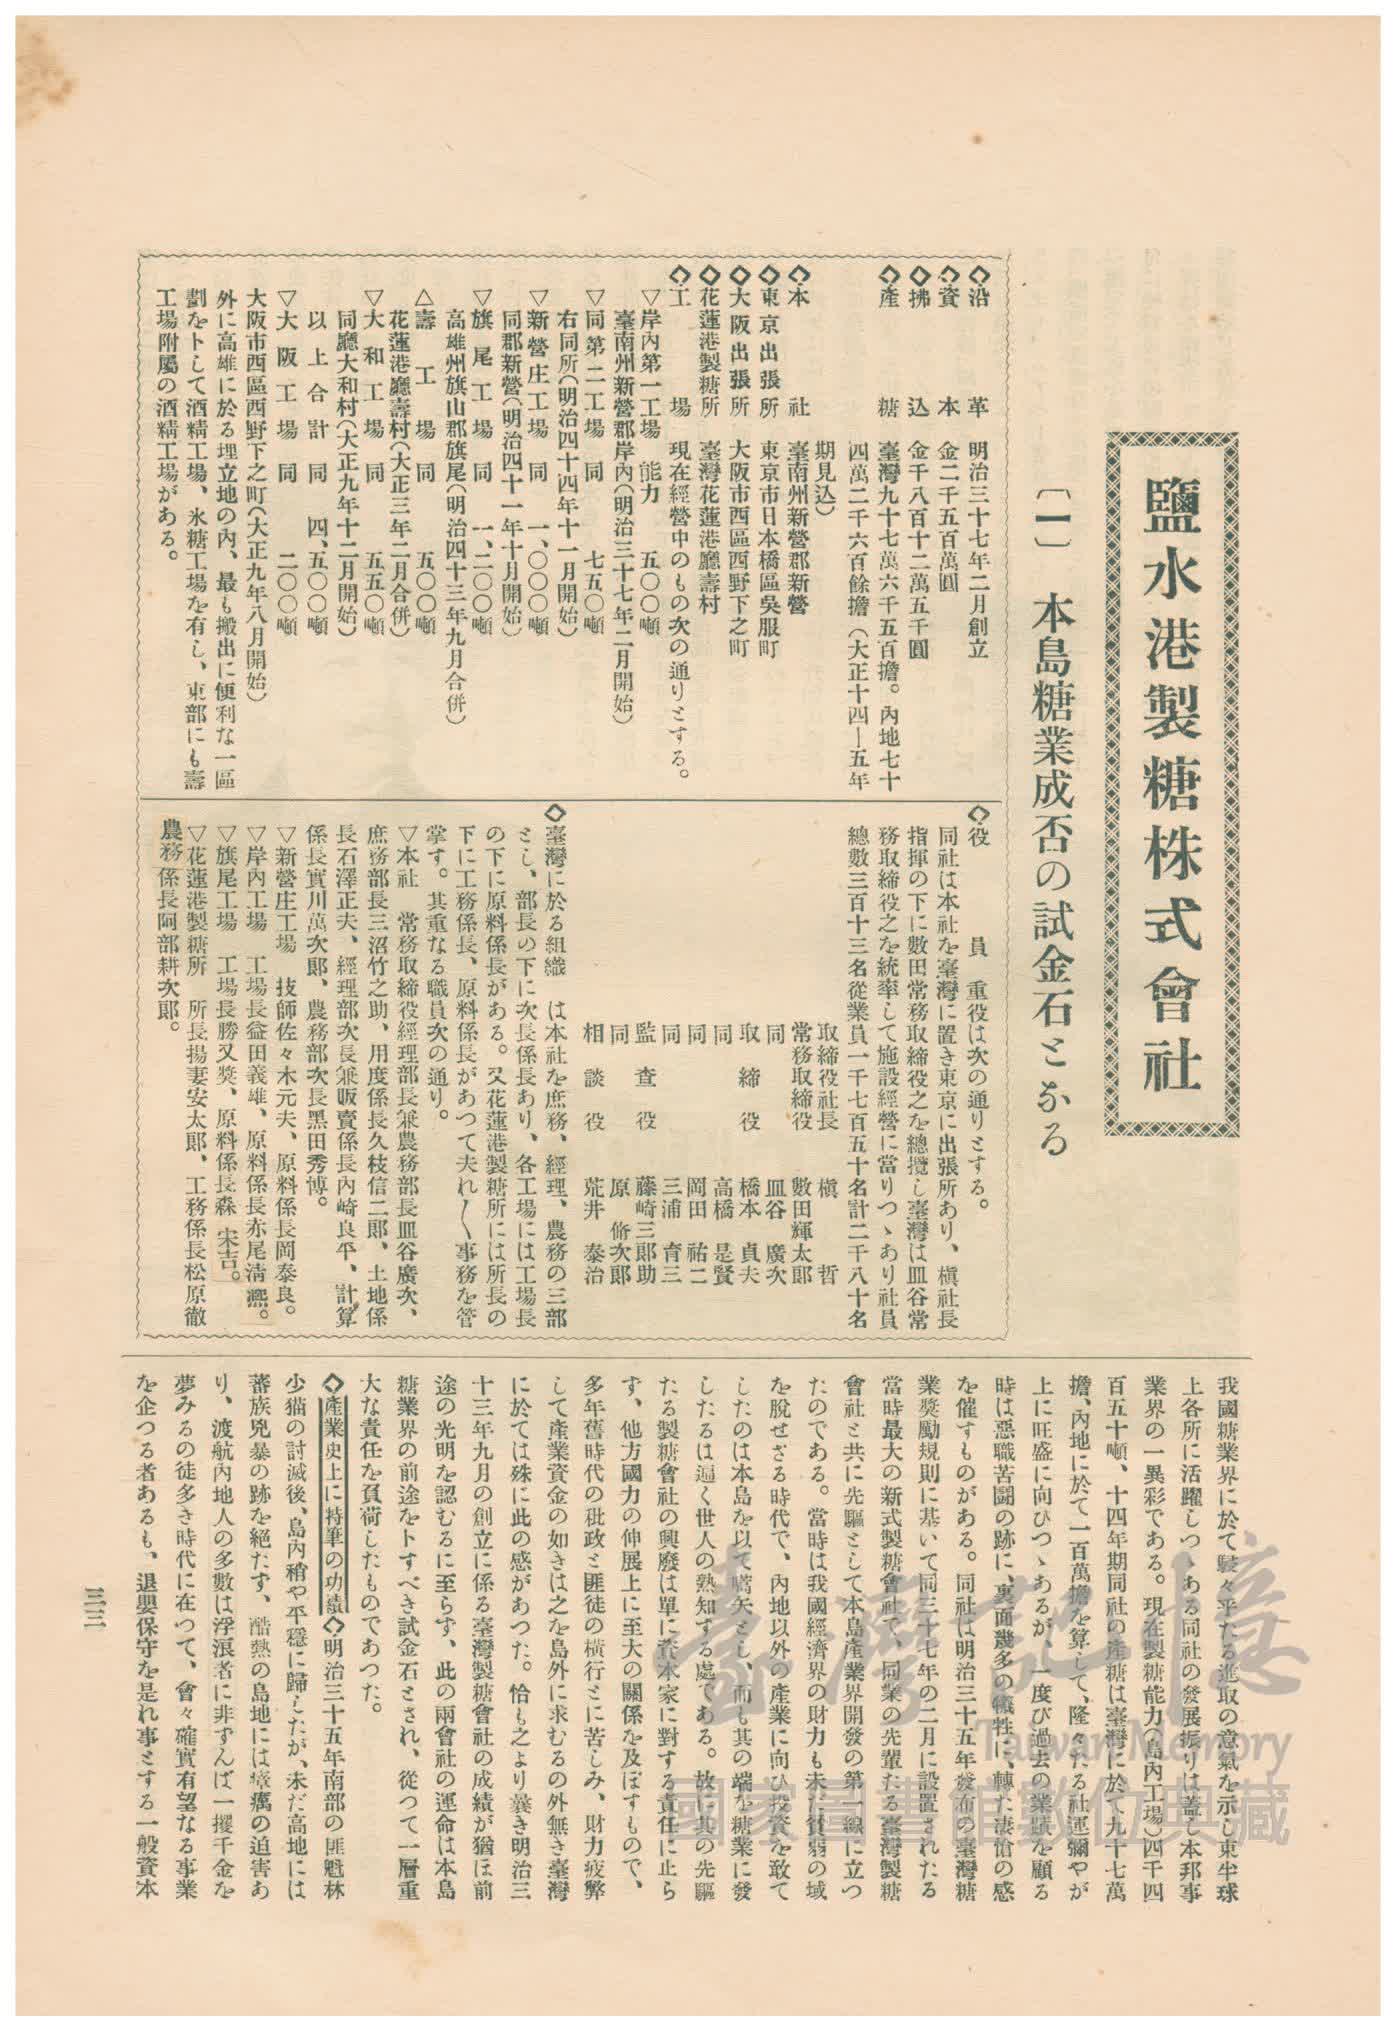 鹽水港製糖株式會社
〔一〕 本島糖業成否の試金石となる
◇沿革 明治三十七年二月創立
◇資本 金二千五百萬圓
◇拂込 金千八百十二萬五千圓
◇產糖 臺灣九十七萬六千五百擔。內地七十
四萬二千六百餘擔（大正十四―五年
期見込）
◇本社 臺南州新營郡新營
◇東京出張所 東京市日本橋區吳服町
◇大阪出張所 大阪市西區西野下之町
◇花蓮港製糖所 臺灣花蓮港廳壽村
◇工場 現在經營中のもの次の通りとする。
▽岸內第一工場 能力 五〇〇噸
臺南州新營郡岸內（明治三十七年二月開始）
▽同第二工場 同 七五〇噸
右同所（明治四十四年十一月開始）
▽新營庄工場 同 一、〇〇〇噸
同郡新營（明治四十一年十月開始）
▽旗尾工場 同 一、二〇〇噸
高雄州旗山郡旗尾（明治四十三年九月合併）
△壽工場 同 五〇〇噸
花蓮港廳壽村（大正三年二月合併）
▽大和工場 同 五五〇噸
同廳大和村（大正九年十二月開始）
以上合計 同 四、五〇〇噸
▽大阪工場 同 二〇〇噸
大阪市西區西野下之町（大正九年八月開始）
外に高雄に於る埋立地の內、最も搬出に便利な一區
劃を卜して酒精工場、氷糖工場を有し、東部にも壽
工場附屬の酒精工場がある。
◇役員 重役は次の通りとする。
同社は本社を臺灣に置き東京に出張所あり、槇社長
指揮の下に數田常務取締役之を總攬し臺灣は皿谷常
務取締役之を統率して施設經營に當りつゝあり社員
總數三百十三名從業員一千七百五十名計二千八十名
取締役社長 槇哲
常務取締役 數田輝太郎
同 皿谷廣次
取締役 橋本貞夫
同 高橋是賢
同 岡田祐二
同 三浦育三
監査役 藤崎三郎助
同 原脩次郎
相談役 荒井泰治
◇臺灣に於る組織 は本社を庶務、經理、農務の三部
とし、部長の下に次長係長あり、各工場には工場長
の下に原料係長がある。又花蓮港製糖所には所長の
下に工務係長、原料係長があつて夫れ〱事務を管
掌す。其重なる職員次の通り。
▽本社 常務取締役經理部長兼農務部長皿谷廣次、
庶務部長三沼竹之助、用度係長久枝信二郎、土地係
長石澤正夫、經理部次長兼販賣係長內崎良平、計算
係長實川萬次郎、農務部次長黑田秀博。
▽新營庄工場 技師佐々木元夫、原料係長岡泰良。
▽岸內工場 工場長益田義雄、原料係長赤尾清凞。
▽旗尾工場 工場長勝又奬、原料係長森宋吉。
▽花蓮港製糖所 所長揚妻安太郎、工務係長松原徹
農務係長阿部耕次郎。
我國糖業界に於て駸々乎たる進取の意氣を示し東半球
上各所に活躍しつゝある同社の發展振りは蓋し本邦事
業界の一異彩である。現在製糖能力（島內工場）四千四
百五十噸、十四年期同社の產糖は臺灣に於て九十七萬
擔、內地に於て一百萬擔を算して、隆々たる社運彌やが
上に旺盛に向ひつゝあるが、一度び過去の業蹟を顧る
時は惡職苦鬪の跡に、裏面幾多の犧牲に、轉た淒愴の感
を催すものがある。同社は明治三十五年發布の臺灣糖
業奬勵規則に基いて同三十七年の二月に設置されたる
當時最大の新式製糖會社で、同業の先輩たる臺灣製糖
會社と共に先驅として本島產業界開發の第一線に立つ
たのである。當時は我國經濟界の財力も未だ貧弱の域
を脫せざる時代で、內地以外の產業に向ひ投資を敢て
したのは本島を以て嚆矢とし、而も其の端を糖業に發
したるは遍く世人の熟知する處である。故に其の先驅
たる製糖會社の興廢は單に資本家に對する責任に止ら
す、他方國力の伸展上に至大の關係を及ぼすもので、
多年舊時代の秕政と匪徒の橫行とに苦しみ、財力疲弊
して產業資金の如きは之を島外に求むるの外無き臺灣
に於ては殊に此の感があつた。恰も之より曩き明治三
十三年九月の創立に係る臺灣製糖會社の成績が猶ほ前
途の光明を認むるに至らす、此の兩會社の運命は本島
糖業界の前途を卜すべき試金石とされ、從つて一層重
大な責任を負荷したものであつた。
◇產業史上に特筆の功績◇明治三十五年南部の匪魁林
少猫の討滅後、島內稍や平穩に歸したが、未だ高地には
蕃族兇暴の跡を絕たす、酷熱の島地には瘴癘の迫害あ
り、渡航內地人の多數は浮浪者に非ずんば一攫千金を
夢みるの徒多き時代に在つて、會々確實有望なる事業
を企つる者あるも、退嬰保守を是れ事とする一般資本
三三
臺灣記憶
Taiwan Memory
國家圖書館數位典藏